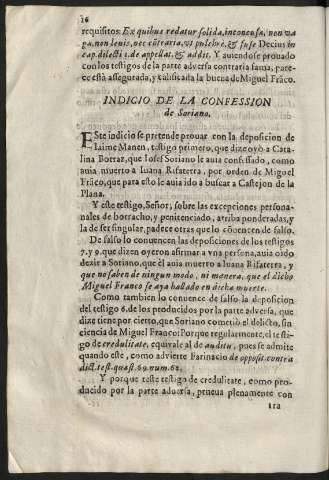 16
requisitos: Ex quibus redatur solida, inconcusa, non va
ga, non leuis, nec cōtraria, vt pulchre, & fuse Decius in
cap. dilecti 1. de appellat. & addit. Y auiendose prouado
con los testigos de la parte aduersa contraria fama, pare-
ce està assegurada, y calificada la buena de Miguel Frāco.
INDICIO DE LA CONFESSION
de Soriano.
ESte indicio se pretende prouar con la deposicion de
Iaime Manen, testigo primero, que dize oyò a Cata-
lina Borraz, que Iosef Soriano le auia confessado, como
auia muerto a Iuana Risaterra, por orden de Miguel
Frāco, que para esto le auia ido a buscar a Castejon de la
Plana.
Y este testigo, Señor, sobre las excepciones persona-
nales de borracho, y penitenciado, arriba ponderadas, y
la de ser singular, padece otras que lo cōuencen de falso.
De falso lo conuencen las deposiciones de los testigos
7. y 9. que dizen oyeron afirmar a vna persona, auia oido
dezir a Soriano, que èl auia muerto a Iuana Risaterra, y
que no saben de ningun modo, ni manera, que el dicho
Miguel Franco se aya hallado en dicha muerte.
Como tambien lo conuence de falso la deposicion
del testigo 6. de los producidos por la parte aduersa, que
dize tiene por cierto, que Soriano cometiò el delicto, sin
ciencia de Miguel Franco: Porque regularmente, el testi-
go de credulitate, equivale al de auditu, pues se admite
quando este, como advierte Farinacio de opposit. contra
dict. test. quæst. 69. num. 62.
Y porque teste testigo de credulitate, como pro-
ducido por la parte aduersa, prueua plenamente con
tra